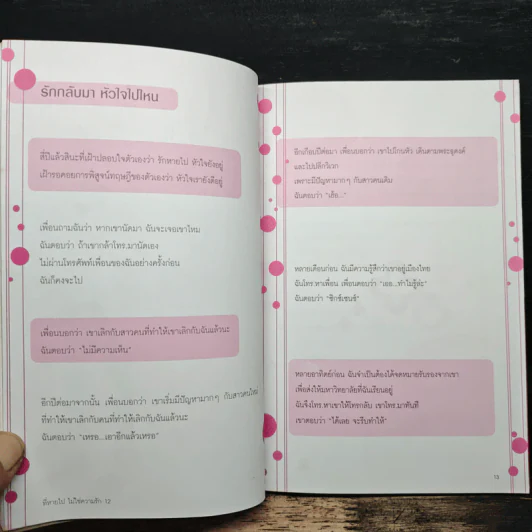 รักกลับมา หัวใจไปไหน
สี่ปีแล้วสินะที่เฝ้าปลอบใจตัวเองว่า รักหายไป หัวใจยังอยู่
เฝ้ารอคอยการพิสูจน์ทฤษฎีของตัวเองว่า หัวใจเรายังดีอยู่
เพื่อนถามฉันว่า หากเขานัดมา ฉันจะเจอเขาไหม
ฉันตอบว่า ถ้าเขากล้าโทร.มานัดเอง
ไม่ผ่านโทรศัพท์เพื่อนของฉันอย่างครั้งก่อน
ฉันก็คงจะไป
เพื่อนบอกว่า เขาเลิกกับสาวคนที่ทำให้เขาเลิกกับฉันแล้วนะ
ฉันตอบว่า "ไม่มีความเห็น"
อีกปีต่อมาจากนั้น เพื่อนบอกว่า เขาเริ่มมีปัญหามากๆ กับสาวคนใหม่
ที่ทำให้เขาเลิกกับคนที่ทำให้เลิกกับฉันแล้วนะ
ฉันตอบว่า "เหรอ...เอาอีกแล้วเหรอ"
ที่หายไป ไม่ใช่ความรัก 12
อีกเกือบปีต่อมา เพื่อนบอกว่า เขาไปโกนหัว เดินตามพระธุดงค์
และไปปลีกวิเวก
เพราะมีปัญหามากๆ กับสาวคนเดิม
ฉันตอบว่า "เฮ้อ..."
หลายเดือนก่อน ฉันมีความรู้สึกว่าเขาอยู่เมืองไทย
ฉันโทร.หาเพื่อน เพื่อนตอบว่า "เออ...ทำไมรู้ล่ะ"
ฉันตอบว่า "ซิกซ์เซนซ์"
หลายอาทิตย์ก่อน ฉันจำเป็นต้องได้จดหมายรับรองจากเขา
เพื่อส่งให้มหาวิทยาลัยที่ฉันเรียนอยู่
ฉันจึงโทร.หาเขาให้โทรกลับ เขาโทร.มาทันที
เขาตอบว่า "ได้เลย จะรีบทำให้"
13